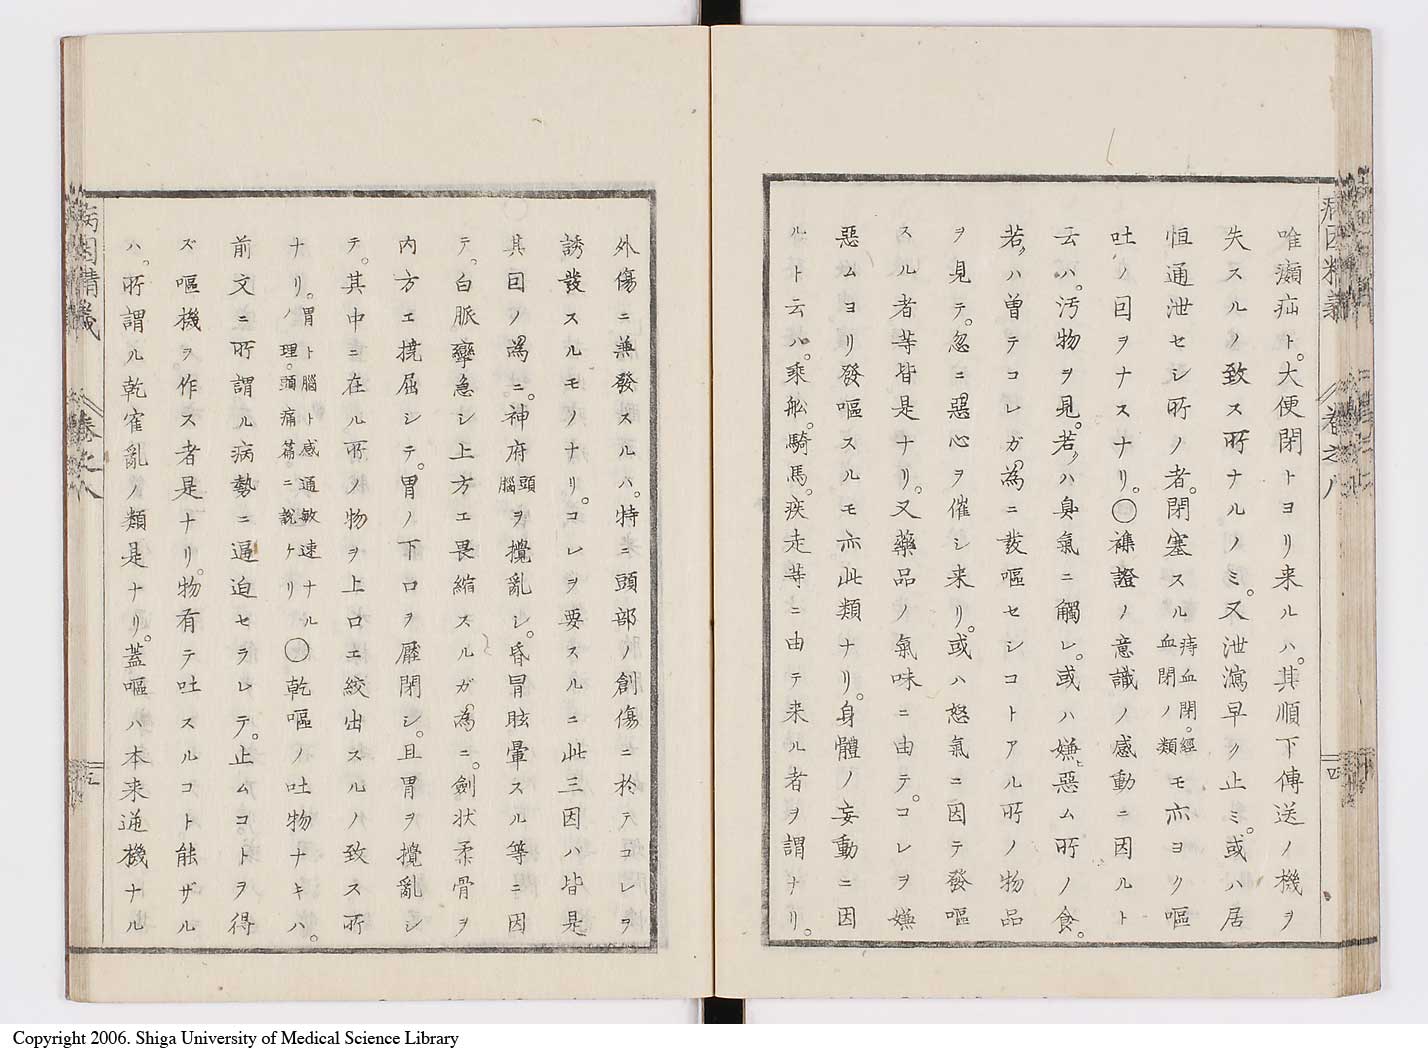 病因精義 卷之八 四
唯癩疝ト。大便閉トヨリ来ルハ。其順下傳送ノ機ヲ
失スルノ致ス所ナルノミ。又泄瀉早ク止ミ。或ハ居
恒通泄セシ所ノ者。閉塞スル痔血閉。經血閉ノ類モ亦ヨク嘔
吐ノ因ヲナスナリ。○襍證ノ意識ノ感動ニ因ルト
云ハ。汚物ヲ見。若ハ臭氣ニ觸レ。或ハ嫌ヒ惡ム所ノ食。
若ハ曽テコレガ為ニ發嘔セシコトアル所ノ物品
ヲ見テ。忽ニ惡心ヲ催シ来リ。或ハ怒氣ニ因テ發嘔
スル者等皆是ナリ。又藥品ノ氣味ニ由テ。コレヲ嫌
惡ムヨリ發嘔スルモ亦此類ナリ。身體ノ妄動ニ因
ルト云ハ。乘舩。騎馬。疾走等ニ由テ来ル者ヲ謂ナリ。
外傷ニ兼發スルハ。特ニ頭部ノ創傷ニ於テコレヲ
誘發スルモノナリ。コレヲ要スルニ此三因ハ皆是
其因ノ為ニ。神府頭腦ヲ攪亂シ。昏冒眩暈スル等ニ因
テ。白脈攣急シ上方エ畏縮スルガ為ニ。劍状柔骨ヲ
内方エ撓屈シテ。胃ノ下口ヲ壓閉シ。且胃ヲ攪亂シ
テ。其中ニ在ル所ノ物ヲ上口エ絞出スルノ致ス所
ナリ。胃ト腦ト感通敏速ナルノ理。頭痛篇ニ説ケリ○乾嘔ノ吐物ナキハ。
前文ニ所謂ル病勢ニ逼迫セラレテ。止ムコトヲ得
ズ嘔機ヲ作ス者是ナリ。物有テ吐スルコト能ザル
ハ。所謂ル乾霍亂ノ類是ナリ。蓋嘔ハ本来逆機ナル
病因精義 卷之八 五
Copyright 2006. Shiga University of Medical Science Library